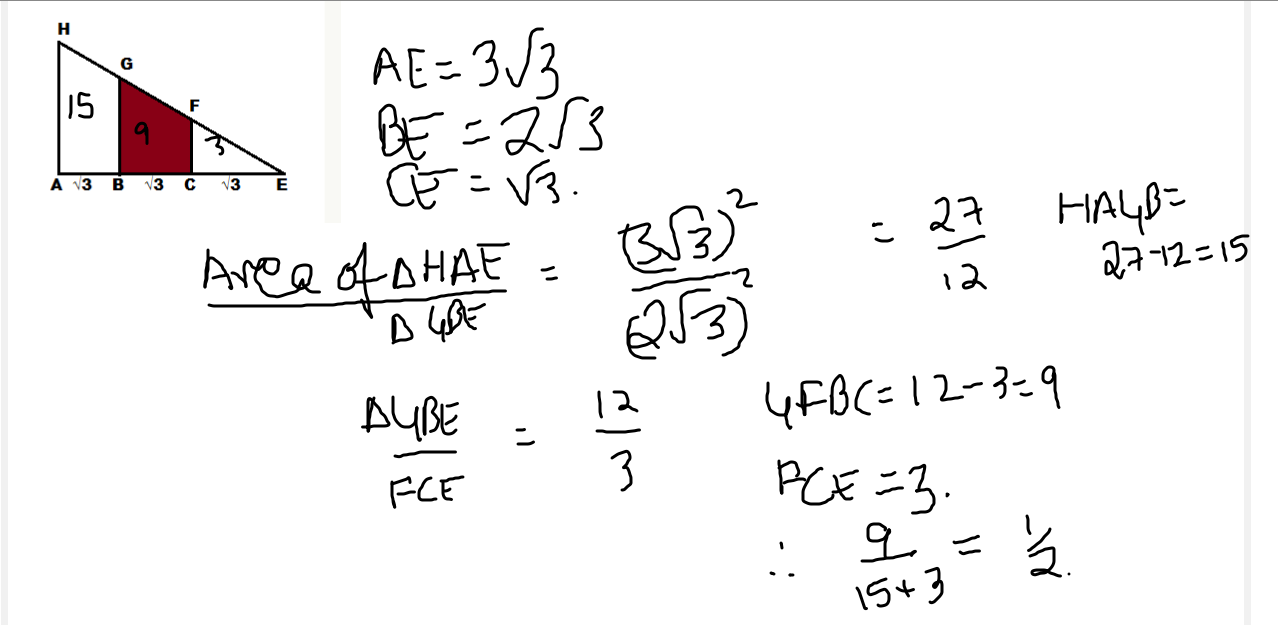 H
G
F
15
9
3
A √3 B √3 C √3 E
AE = 3√3
BE = 2√3
CE = √3.
Area of ΔHAE / ΔGBE = (3√3)² / (2√3)² = 27 / 12
HAGB =
27-12=15
ΔGBE / FCE = 12 / 3
GFBC = 12-3=9
FCE = 3.
∴ 9 / 15+3 = 1/2.